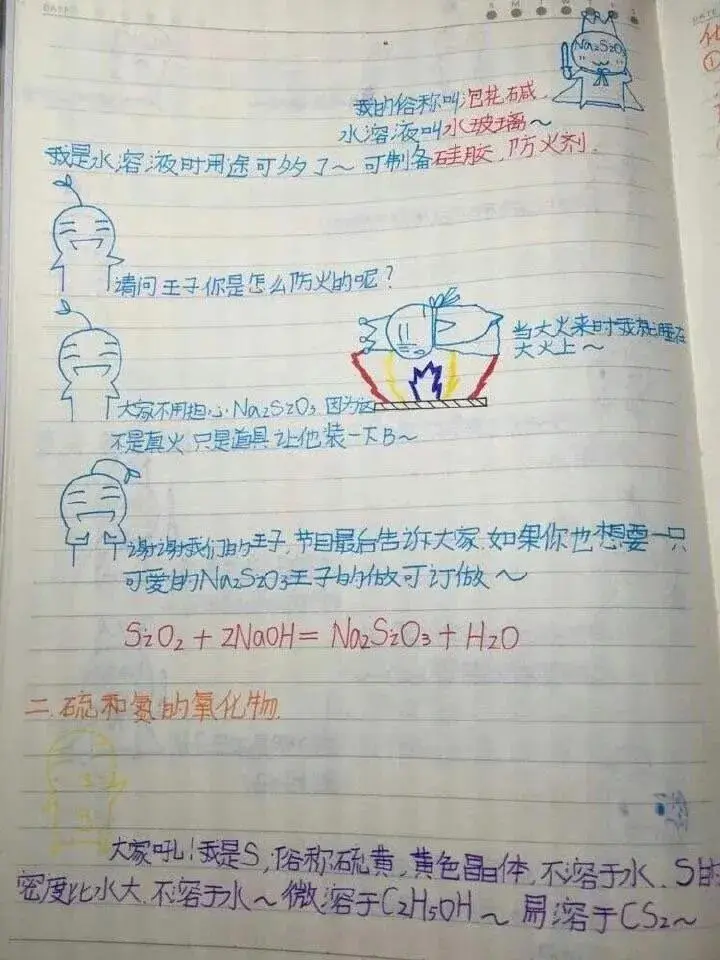 DATE
S M T W T F S
Na2SiO3
我的俗称叫泡花碱,
水溶液叫水玻璃~
我是水溶液时用途可多了~ 可制备硅胶, 防火剂.
请问王子你是怎么防火的呢?
当大火来时我就睡在
大火上~
大家不用担心Na2SiO3, 因为这
不是真火, 只是道具, 让他装一下B~
谢谢我们的王子, 节目最后告诉大家, 如果你也想要一只
可爱的Na2SiO3王子的做可订做~
SiO2 + 2NaOH = Na2SiO3 + H2O
二. 硫和氮的氧化物.
大家吼! 我是S, 俗称硫黄, 黄色晶体, 不溶于水, S的
密度比水大, 不溶于水~ 微溶于C2H5OH~ 易溶于CS2~
DATE
化
①